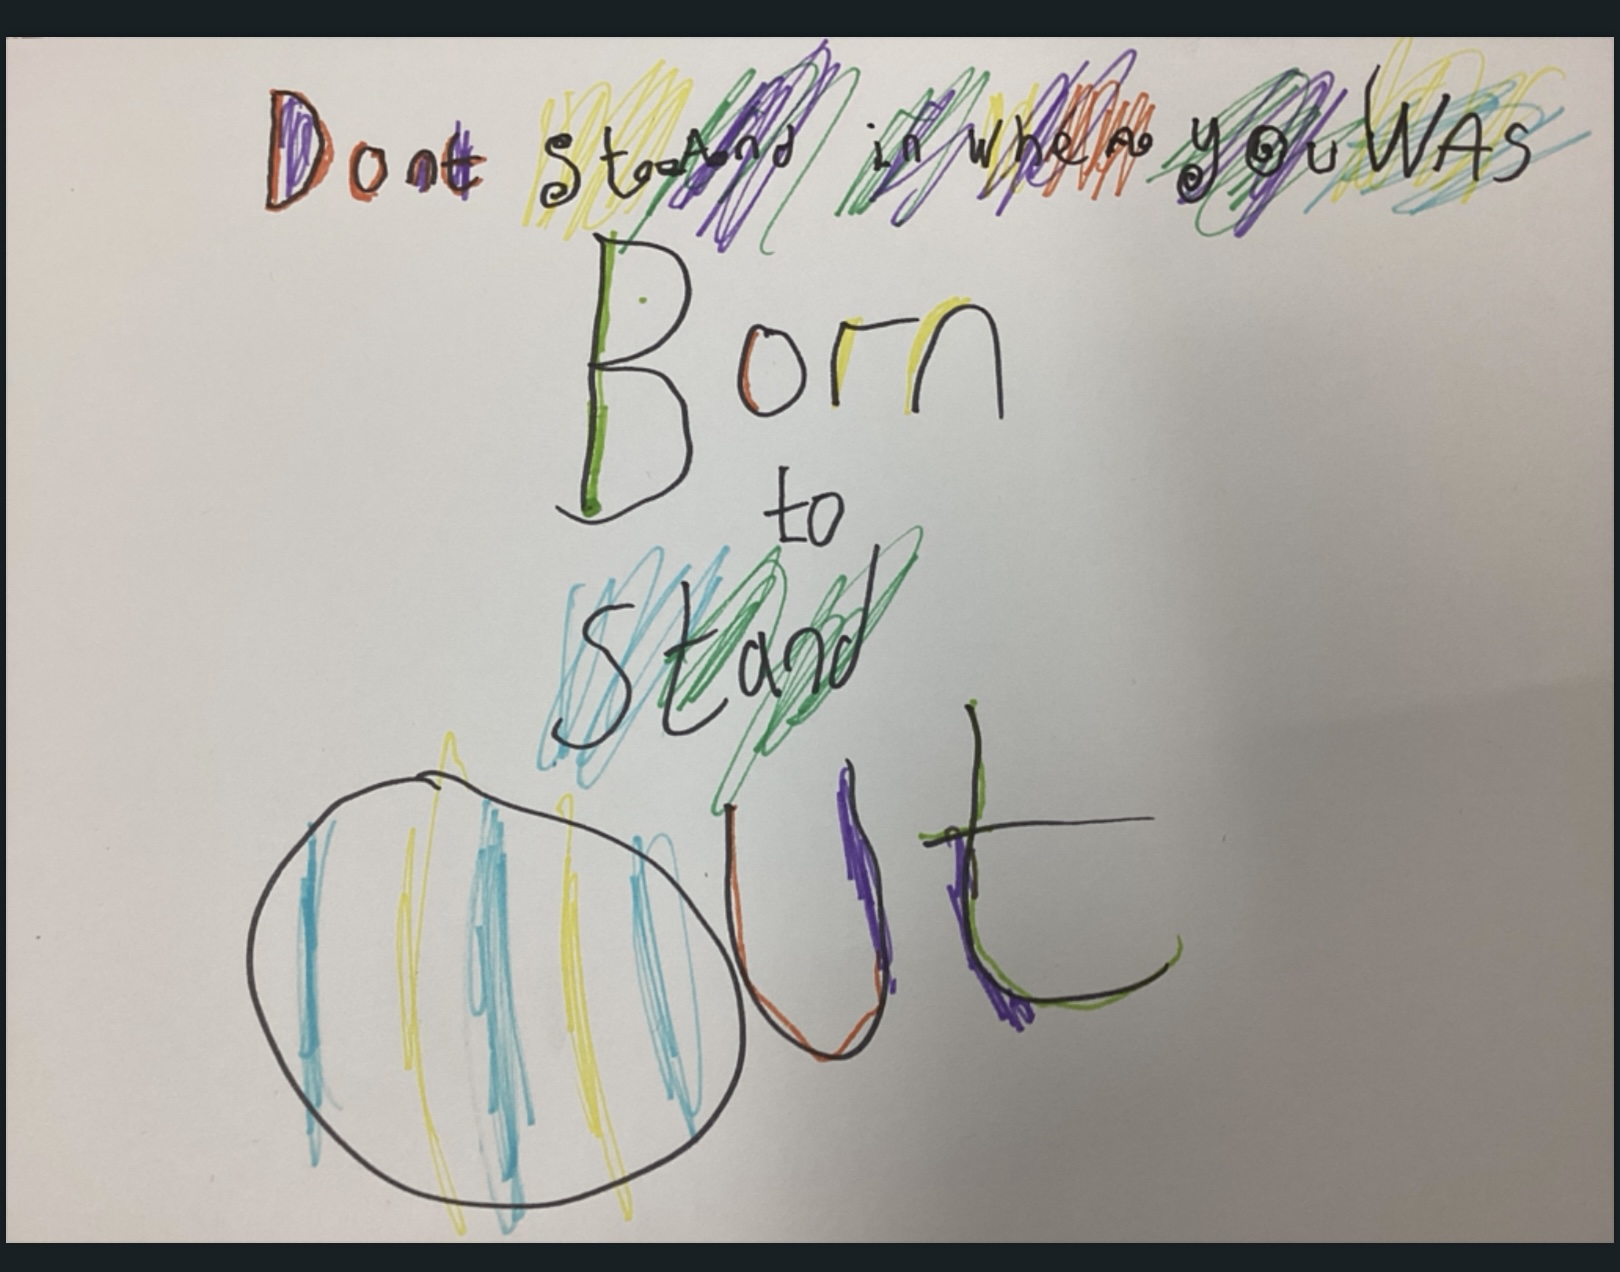 Dont stAnd in when you WAs
Born
to
Stand
Out